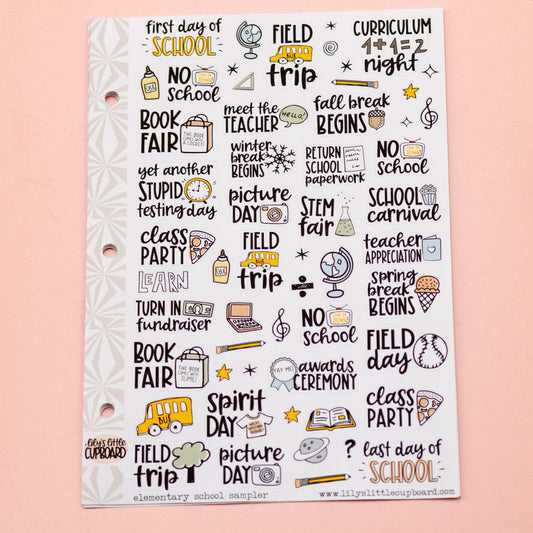 first day of
SCHOOL
FIELD
BUS
trip
CURRICULUM
1+1=2
night
NO
School
meet the
TEACHER
HELLO!
fall break
BEGINS
BOOK
FAIR
THIS BOOK
COMES WITH
A LOCKET!
winter
break
BEGINS
RETURN
SCHOOL
paperwork
NO
SCHOOL
yet another
STUPID
testing day
picture
DAY
STEM
fair
SCHOOL
carnival
class
PARTY
FIELD
BUS
trip
teacher
APPRECIATION
LEARN
spring
break
BEGINS
TURN IN
fundraiser
NO
SCHOOL
FIELD
day
BOOK
FAIR
THIS BOOK
COMES WITH
SLIME!
YAY ME!
awards
CEREMONY
BUS
Spirit
DAY
class
PARTY
lily's little
CUPBOARD
FIELD
trip
picture
DAY
?
last day of
SCHOOL
elementary school sampler
www.lilyslittlecupboard.com